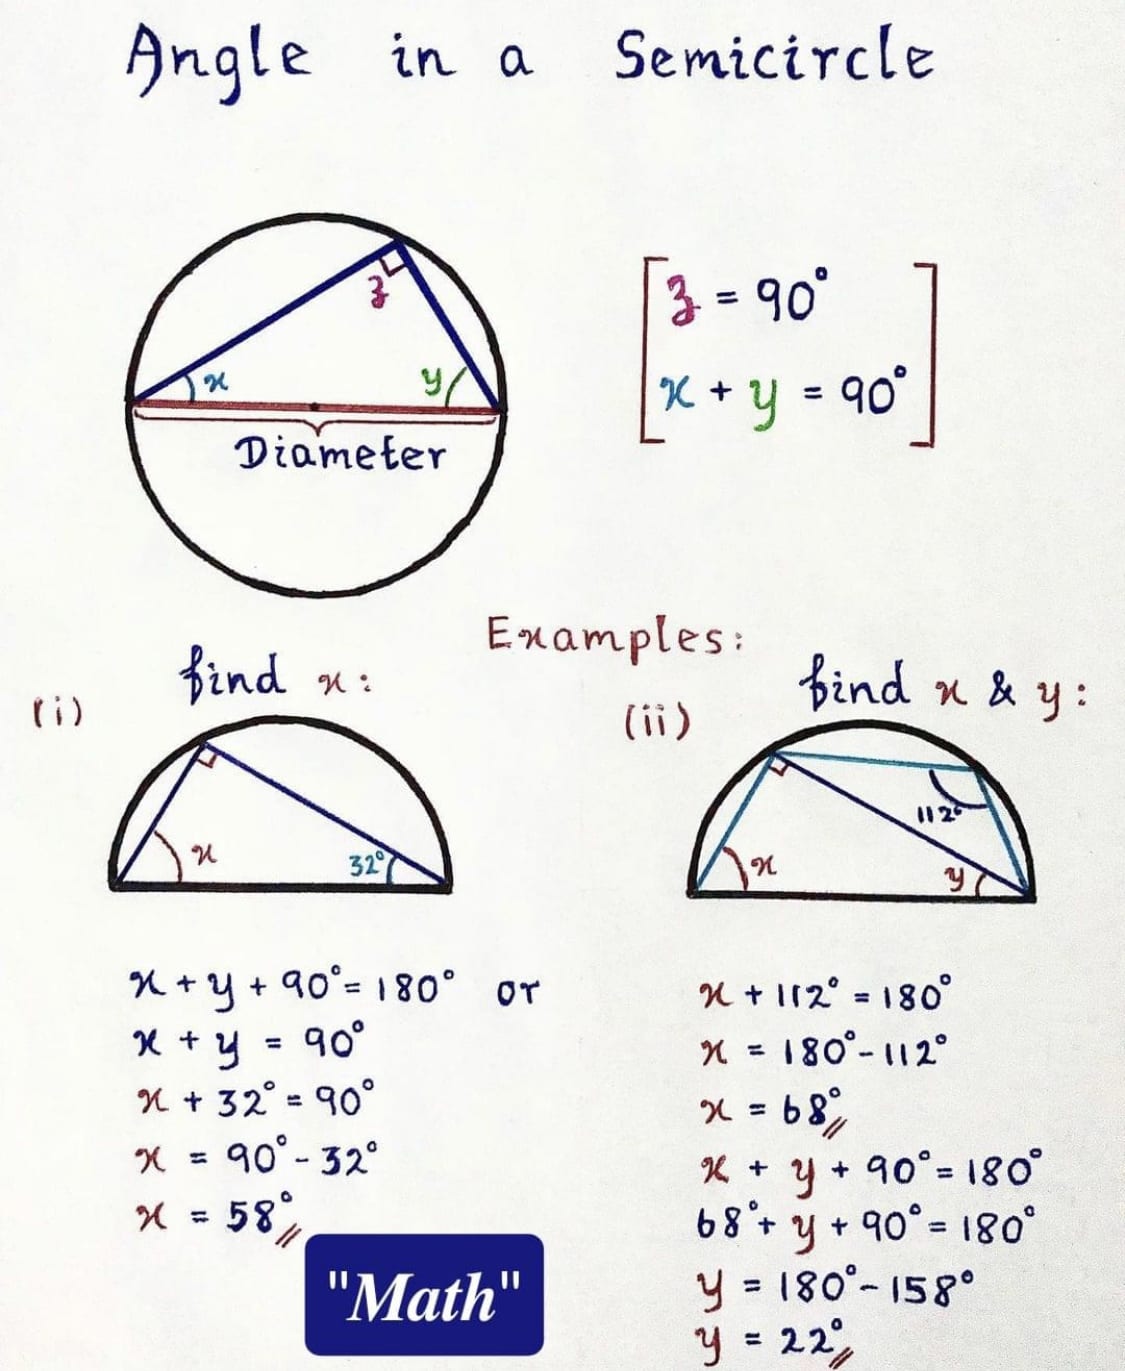 Angle in a Semicircle
z
x
y
Diameter
z = 90°
x + y = 90°
Examples:
(i) find x:
x
32°
x + y + 90° = 180° or
x + y = 90°
x + 32° = 90°
x = 90° - 32°
x = 58°
(ii) find x & y:
112°
x
y
x + 112° = 180°
x = 180° - 112°
x = 68°
x + y + 90° = 180°
68° + y + 90° = 180°
y = 180° - 158°
y = 22°
"Math"